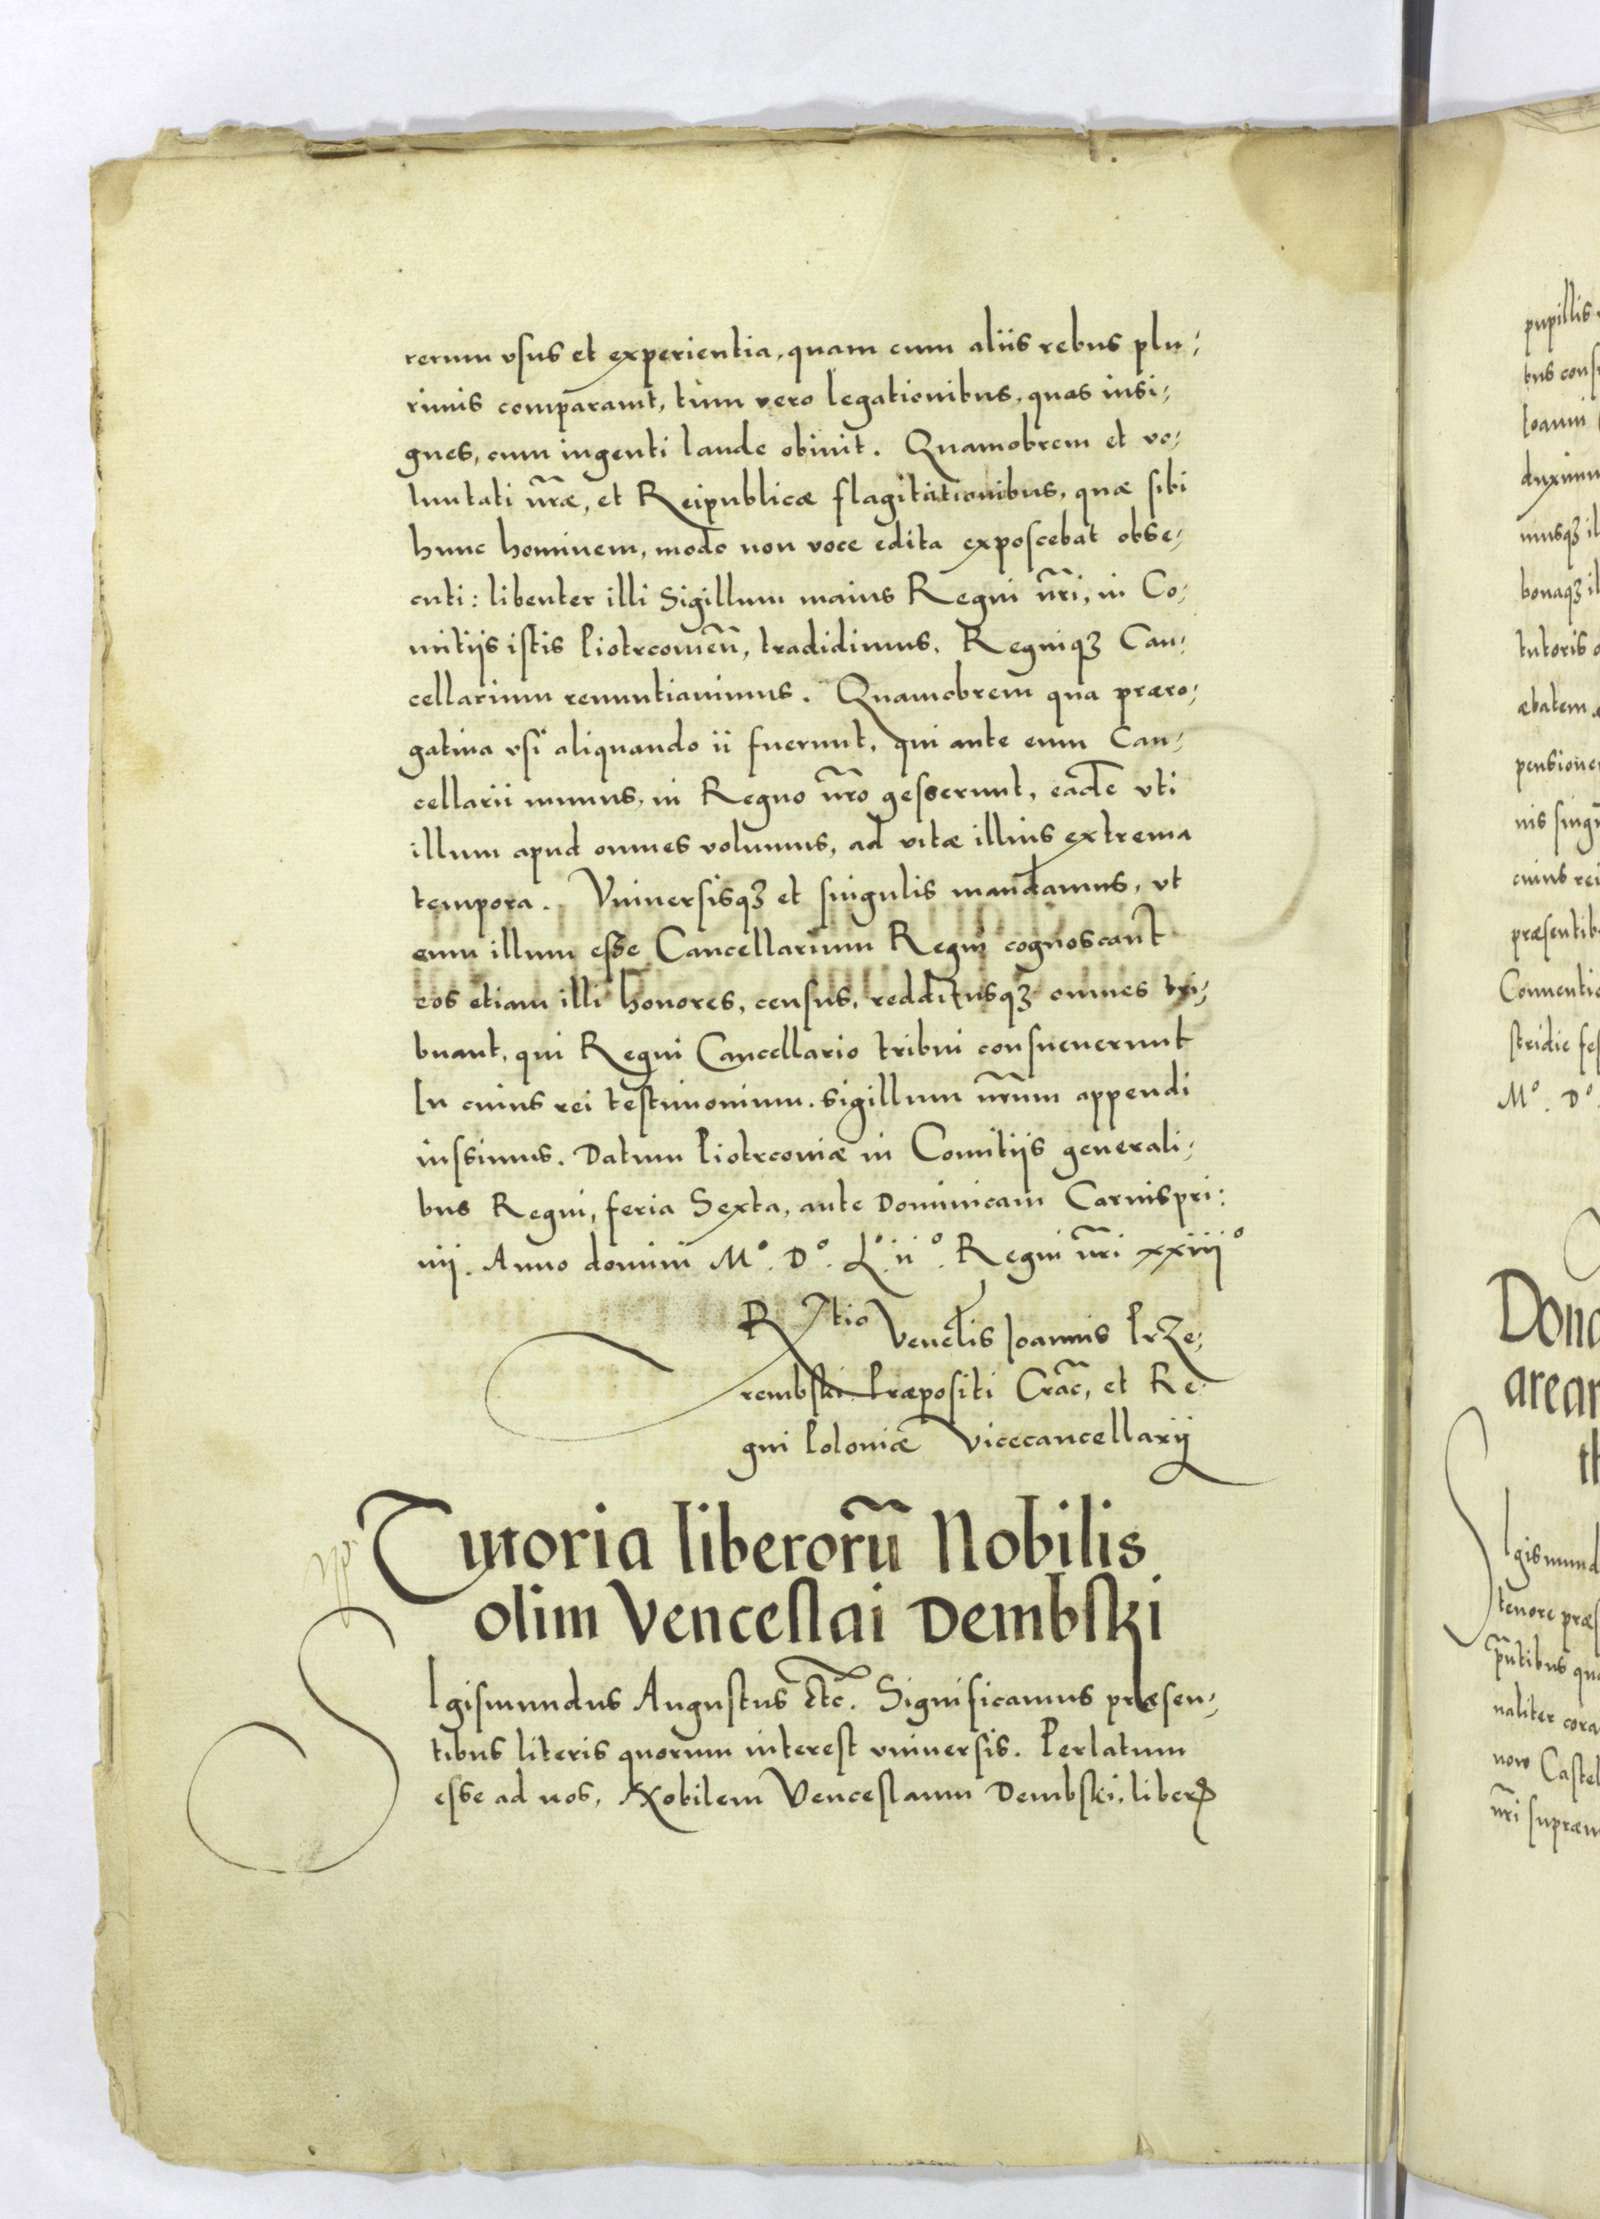 rerum vsus et experientia, quam cum aliis rebus plu⸗
rimis comparauit, tum vero legationibus, quas insi⸗
gnes, cum ingenti laude obiuit. Quamobrem et vo⸗
luntati nr̃æ, et Reipublicæ flagitationibus, quæ sibi
hunc hominem, modo non voce edita exposcebat obse⸗
cuti: libenter illi Sigillum maius Regni nr̃i, in Co⸗
mitijs istis Piotrcouieñ, tradidimus, Regniqꝫ Can⸗
cellarium renuntiauimus. Quamobrem qua præro⸗
gatiua vsi aliquando ii fuerunt, qui ante eum Can⸗
cellarii munus, in Regno nr̃o gesserunt, eadē vti
illum apud omnes volumus, ad vitæ illius extrema
tempora. Vniuersisqꝫ et singulis mandamus, vt
eum illum esse Cancellarium Regni cognoscant
eos etiam illi honores, census, redditusqꝫ omnes tri⸗
buant, qui Regni Cancellario tribui consueuerunt
In cuius rei testimonium. sigillum nr̃um appendi
iussimus. Datum Piotrcouiæ in Comitijs generali⸗
bus Regni, feria Sexta, ante Dominicam Carnispri:
uij. Anno domini Mº. Dº. Lº. iiº. Regni nr̃i xxiiijº
Rtio Venelis Ioannis Prze⸗
rembski Præpositi Crac̃, et Re⸗
gni Poloniæ Vicecancellarij
Tutoria liberorū Nobilis
olim Venceslai Dembski
SIgismundus Augustus etc̃. Significamus præsen⸗
tibus literis quorum interest vniuersis. Perlatum
esse ad nos, Nobilem Venceslaum Dembski, liberoꝝ
pupillis
bus cons
Ioanni
duximu
musqꝫ il
bonaqꝫ il
tutoris
ætatem
pensione
nis sing
cuius rei
præsentib
Conuentio
stridie fes
Mº. Dº.
Dona
arear
th
SIgismund
tenore præs
pñtibus qu
naliter cora
now Castel
nr̃i supræm